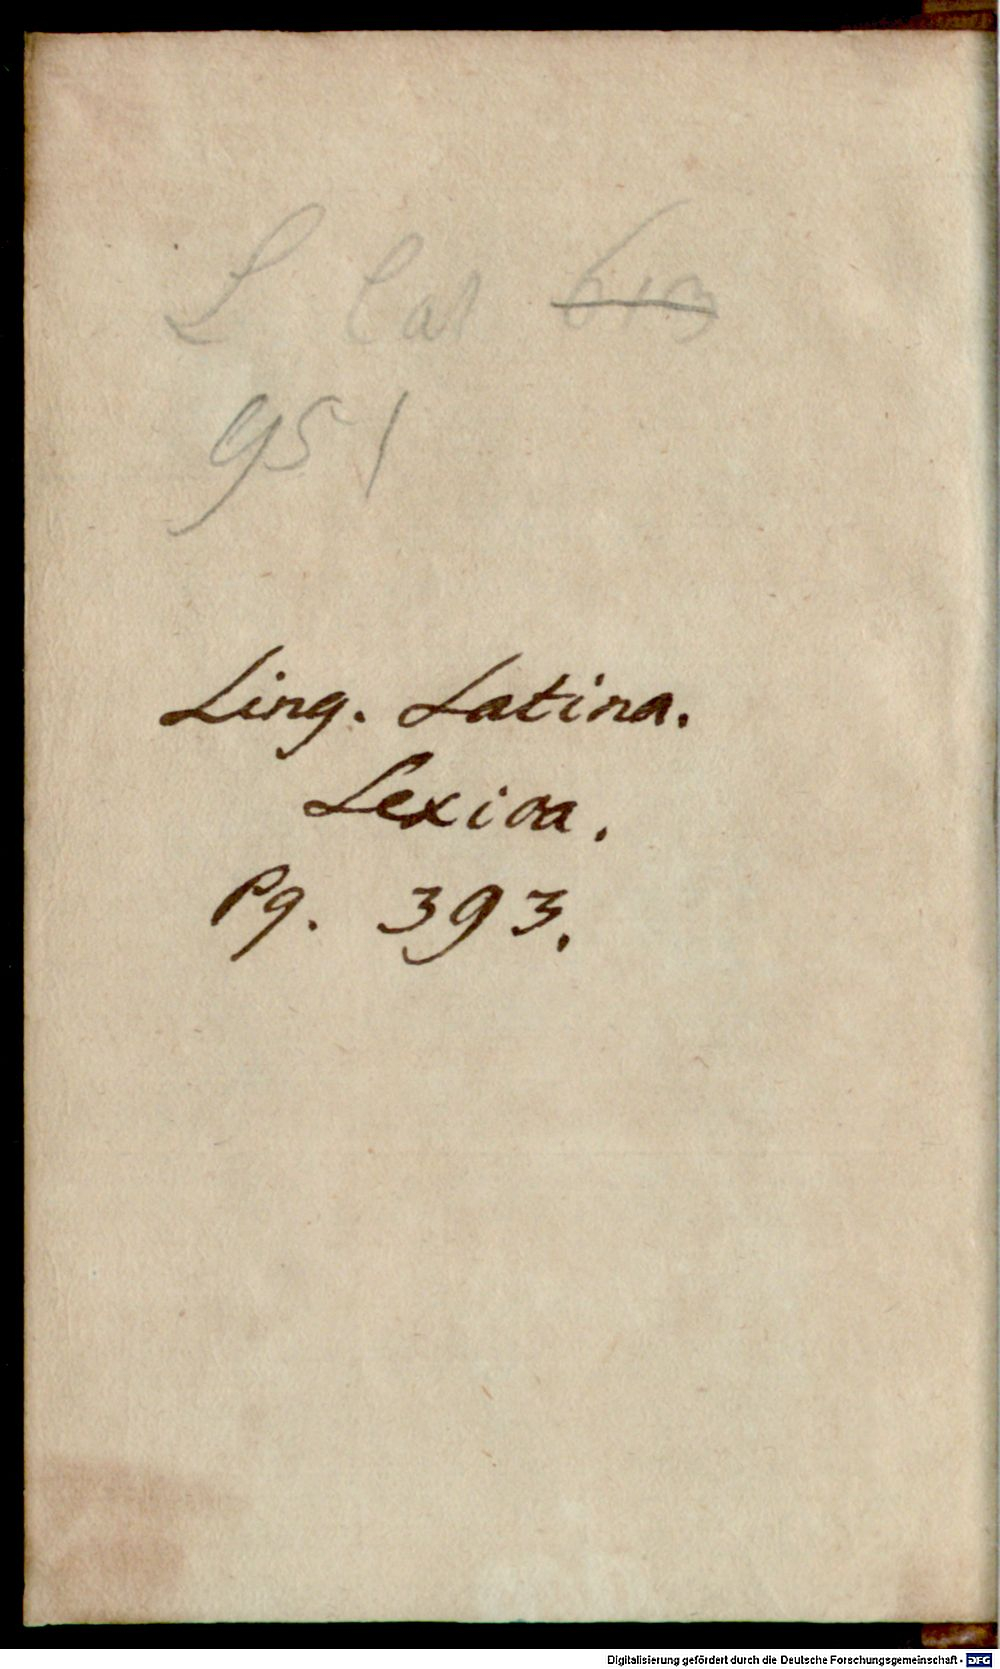 L lat
951
Ling. Latina.
Lexica.
Pg. 393.
Digitalisierung gefördert durch die Deutsche Forschungsgemeinschaft - DFG